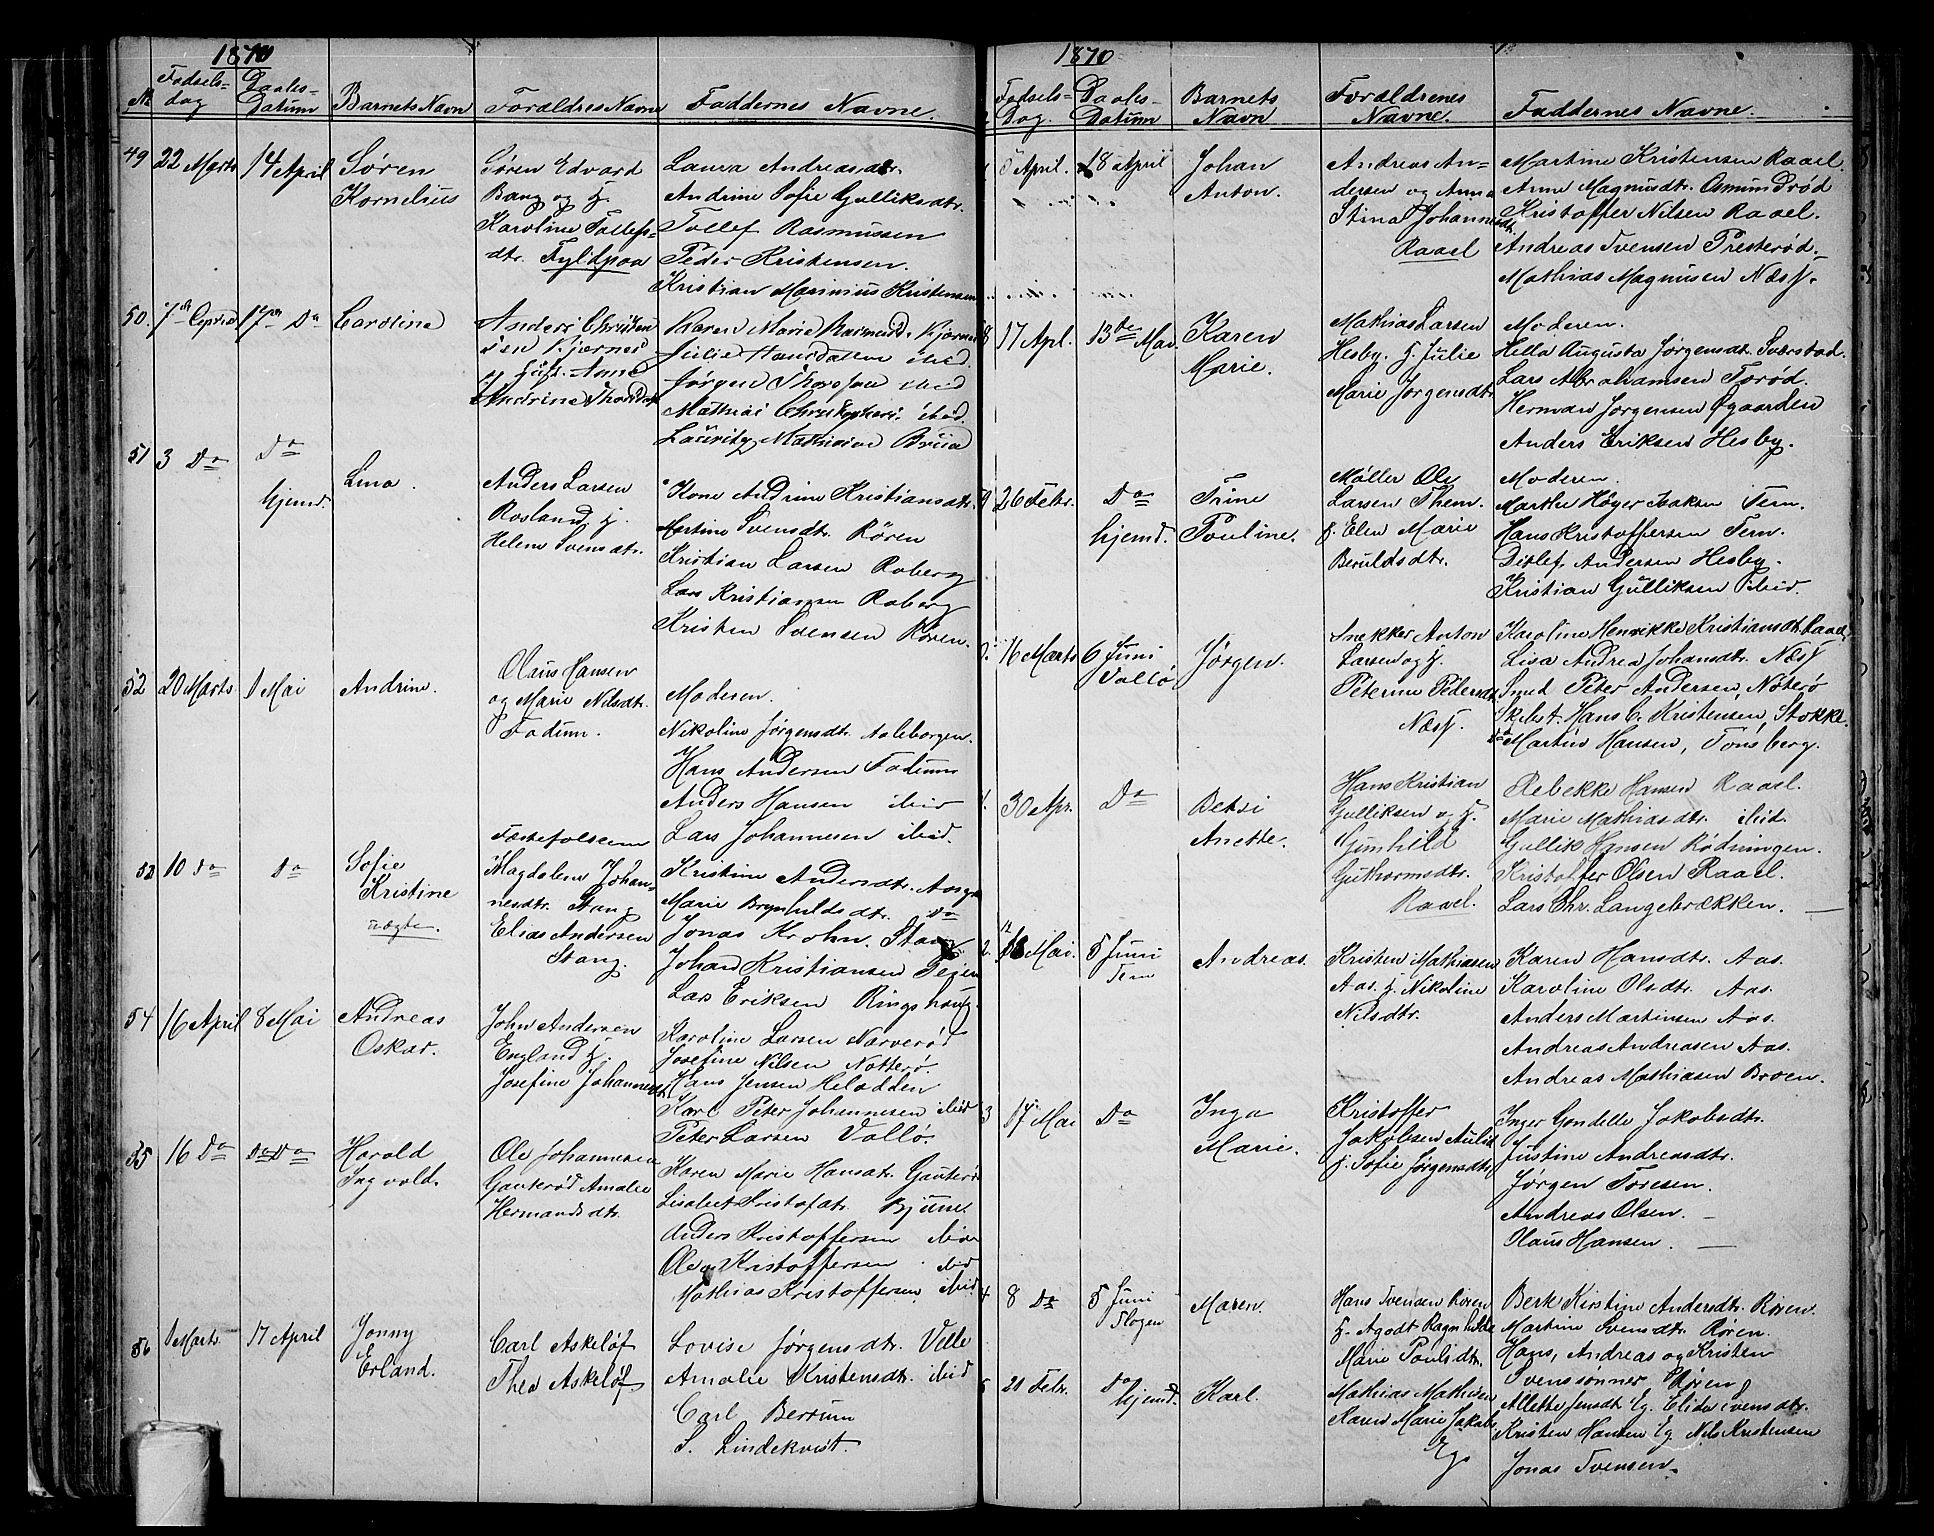 1870
№ Fødsels-dag Daabs-Datum Barnets Navn Forældres Navne Faddernes Navne.
49 22 Marts 14 April Søren Kornelius
Søren Edvard
Bang og h.
Karoline Tollefs-
dtr. Fyldpaa
Laura Andreasdtr.
Andrine Sofie Gulliksdtr.
Tollef Rasmussen
Peder Kristensen.
Kristian Marinius Kristensen
50. 7de April 17de Do Caroline
Anders Christen
sen Kjærnes
og hust. Anne
Andrine Thorsdtr
Karen Marie Rasmusd. Kjærnes
Julie Hansdatter ibid.
Jørgen Thorsen ibid
Mathias Christophers. ibid.
Lauritz Mathisen
51 3 Do Do hjemd. Lina.
Anders Larsen
Rosland h.
Helene Svensdtr.
Kone Andrine Kristiansdtr.
Martine Svensdtr. Røren
Kristian Larsen Roberg
Lars Kristiansen Roberg
Kristen Svensen Røren.
52 20 Marts 1 Mai Andrine.
Olaus Hansen
og Marie Nilsdtr.
Fodum.
Moderen.
Nikoline Jørgensdtr. Aaleborgen.
Hans Andersen Fodum
Anders Hansen ibid
Lars Johannesen ibid.
53 10 Do Do Sofie Kristine uægte.
Fæstefolkene
Magdalene Johan-
nesdtr. Stang
Elias Andersen
Stang.
Kristine Andersdtr.
Marie Brynhildsdtr. Do
Jonas Krohn Stang
Johan Kristiansen Teien
Lars Eriksen Ringshaug.
54 16 April 8 Mai Andreas Oskar.
John Andersen
England h.
Josefine Johannesdtr
Karoline Larsen Narverød
Josefine Nilsen Nøtterø.
Hans Jensen Helodden
Karl Peter Johannesen ibid
Peter Larsen Vallø.
55 16 Do Do Do Harald Ingvold.
Ole Johannesen
Gauterød Amalie
Hermandsdtr.
Karen Marie Hansdtr. Gauterød
Lisabet Kristofdtr. Bjune
Anders Kristoffersen ibid
Ole Kristoffersen ibid
Mathias Kristoffersen ibid
56 1 Marts 17 April Jonny Erland.
Carl Askeløf
Thea Askeløf
Lovise Jørgensdtr. Velle
Amalie Kristensdtr. ibid
Carl Berrum
S. Lindekvist.
1870
Fødsels-Dag. Daabs-Datum Barnets Navn Forældrenes Navne. Faddernes Navne.
5 April. 18 April Johan Anton.
Andreas An-
dersen og Anna
Stina Johannesdtr.
Raael
Martine Kristensen Raael.
Anne Magnusdtr. Osmundrød
Kristoffer Nilsen Raael.
Andreas Svensen Presterød.
Mathias Magnusen Næss.
17 Apl. 13de Mai. Karen Marie.
Mathias Larsen
Hesby. h. Julie
Marie Jørgensdtr.
Moderen.
Hella Augusta Jørgensdt. Sværstad.
Lars Abrahamsen Torød.
Herman Jørgensen Øgaarden
Anders Eriksen Hesby.
26 Febr. Do hjemd. Trine Pouline.
Møller Ole
Larsen Them.
h. Elen Marie
Beruldsdtr.
Moderen.
Marthe Høyer Isaksen Tem.
Hans Kristoffersen Tem.
Ditlef Andersen Hesby.
Kristian Gulliksen ibid.
16 Marts 6 Juni Vallø Jørgen.
Snekker Anton
Larsen og h.
Peterine Pedersdtr
Næss.
Karoline Henrikke Kristiansdt. Raael
Lisa Andrea Johansdtr. Næss
Smed Peter Andersen, Nøterø
Skibst. Hans C. Kristensen, Stokke.
Do Martin Hansen, Tønsberg.
30 Apr. Do Betsi Anette.
Hans Kristian
Gulliksen og h.
Gunhild
Guthormsdtr.
Raael.
Rebekke Hansen Raael.
Marie Mathiasdtr. ibid.
Gullik Hansen Rødningen.
Kristoffer Olsen Raael.
Lars Chr. Langebrækken.
Mai. 5 Juni Sem Andreas.
Kristen Mathiasen
Aas. h. Nikoline
Nilsdtr.
Karen Hansdtr. Aas.
Karoline Olsdtr. Aas.
Anders Martinsen Aas.
Andreas Andreasen Aas.
Andreas Mathiasen Broen.
17 Mai Do Inga Marie.
Kristoffer
Jakobsen Aulid
h. Sofie Jørgensdtr,
Inger Gondelle Jakobsdtr.
Justine Andreasdtr.
Jørgen Toresen.
Andreas Olsen.
Olaus Hansen.
8 Do 5 Juni Slagen Maren.
Hans Svensen Røren
h. Agodt Ragnhilda
Marie Poulsdtr.
Berte Kirstine Andersdtr. Røren.
Martine Svensdtr. Røren.
Hans, Andreas og Kristen
Svenssønner Røren
21 Febr. Do hjemd. Karl.
Mathias Mathisen
Karen Marie Jakobs.
Eg.
Allette Jensdt. Eg. Elide Svensdtr.
Kristen Hansen Eg Nils Kristensen
Jonas Svensen.